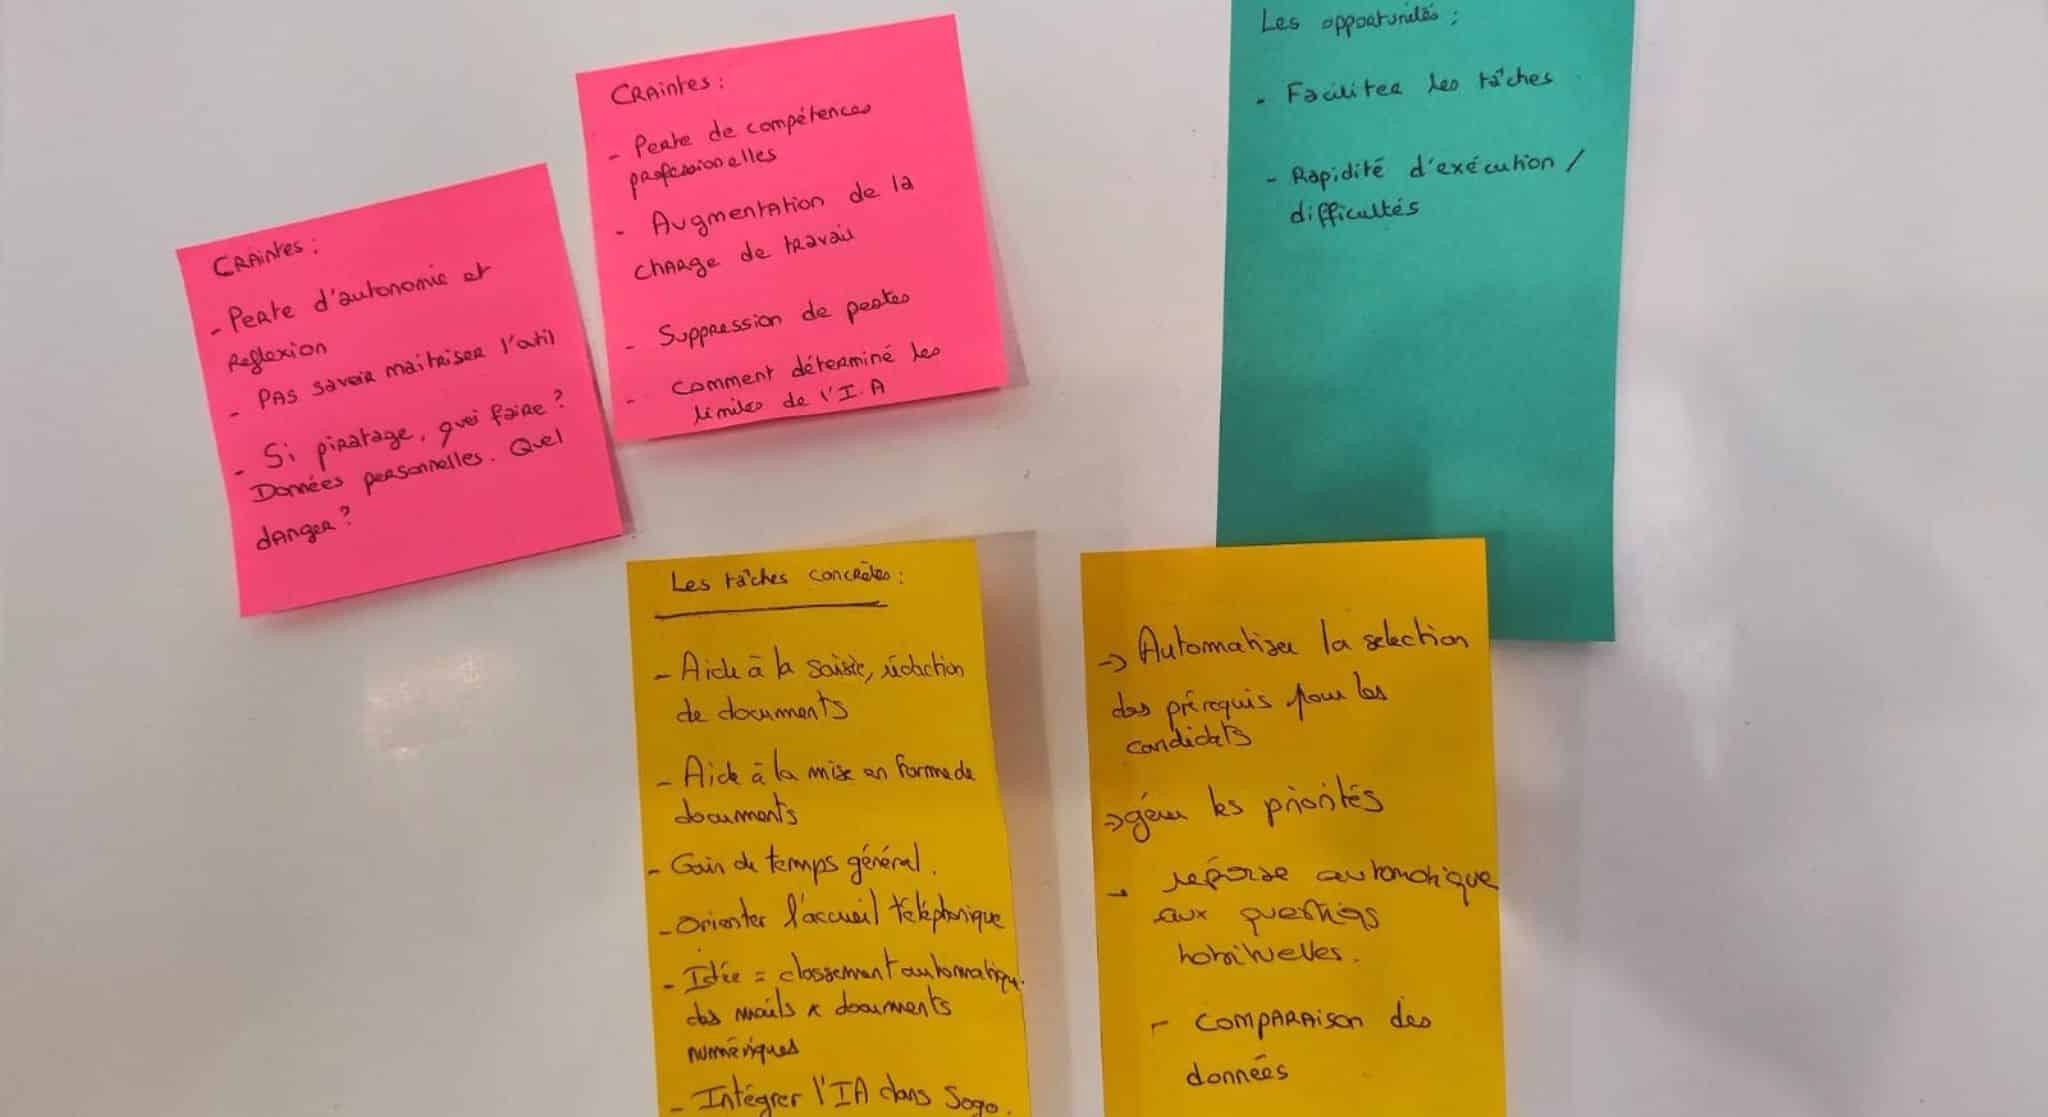 CRAINTES :
- Perte d'autonomie et
Reflexion
- PAS savoir maitriser l'outil
- Si piratage, quoi faire ?
Données personnelles. Quel
danger ?
CRAINTES :
- Perte de compétences
professionelles
- Augmentation de la
charge de travail
- Suppression de postes
- Comment déterminé les
limites de l'I.A
Les opportunités :
- Faciliter les tâches
- Rapidité d'exécution /
difficultés
Les tâches concrètes :
- Aide à la saisie, rédaction
de documents
- Aide à la mise en forme de
documents
- Gain de temps général.
- Orienter l'accueil téléphonique
- Idée = classement automatique
des mails x documents
numériques
- Intégrer l'IA dans Sogo.
-> Automatiser la selection
des prérequis pour les
candidats
-> gérer les priorités
- réponse automatique
aux questions
habituelles.
- COMPARAISON des
données